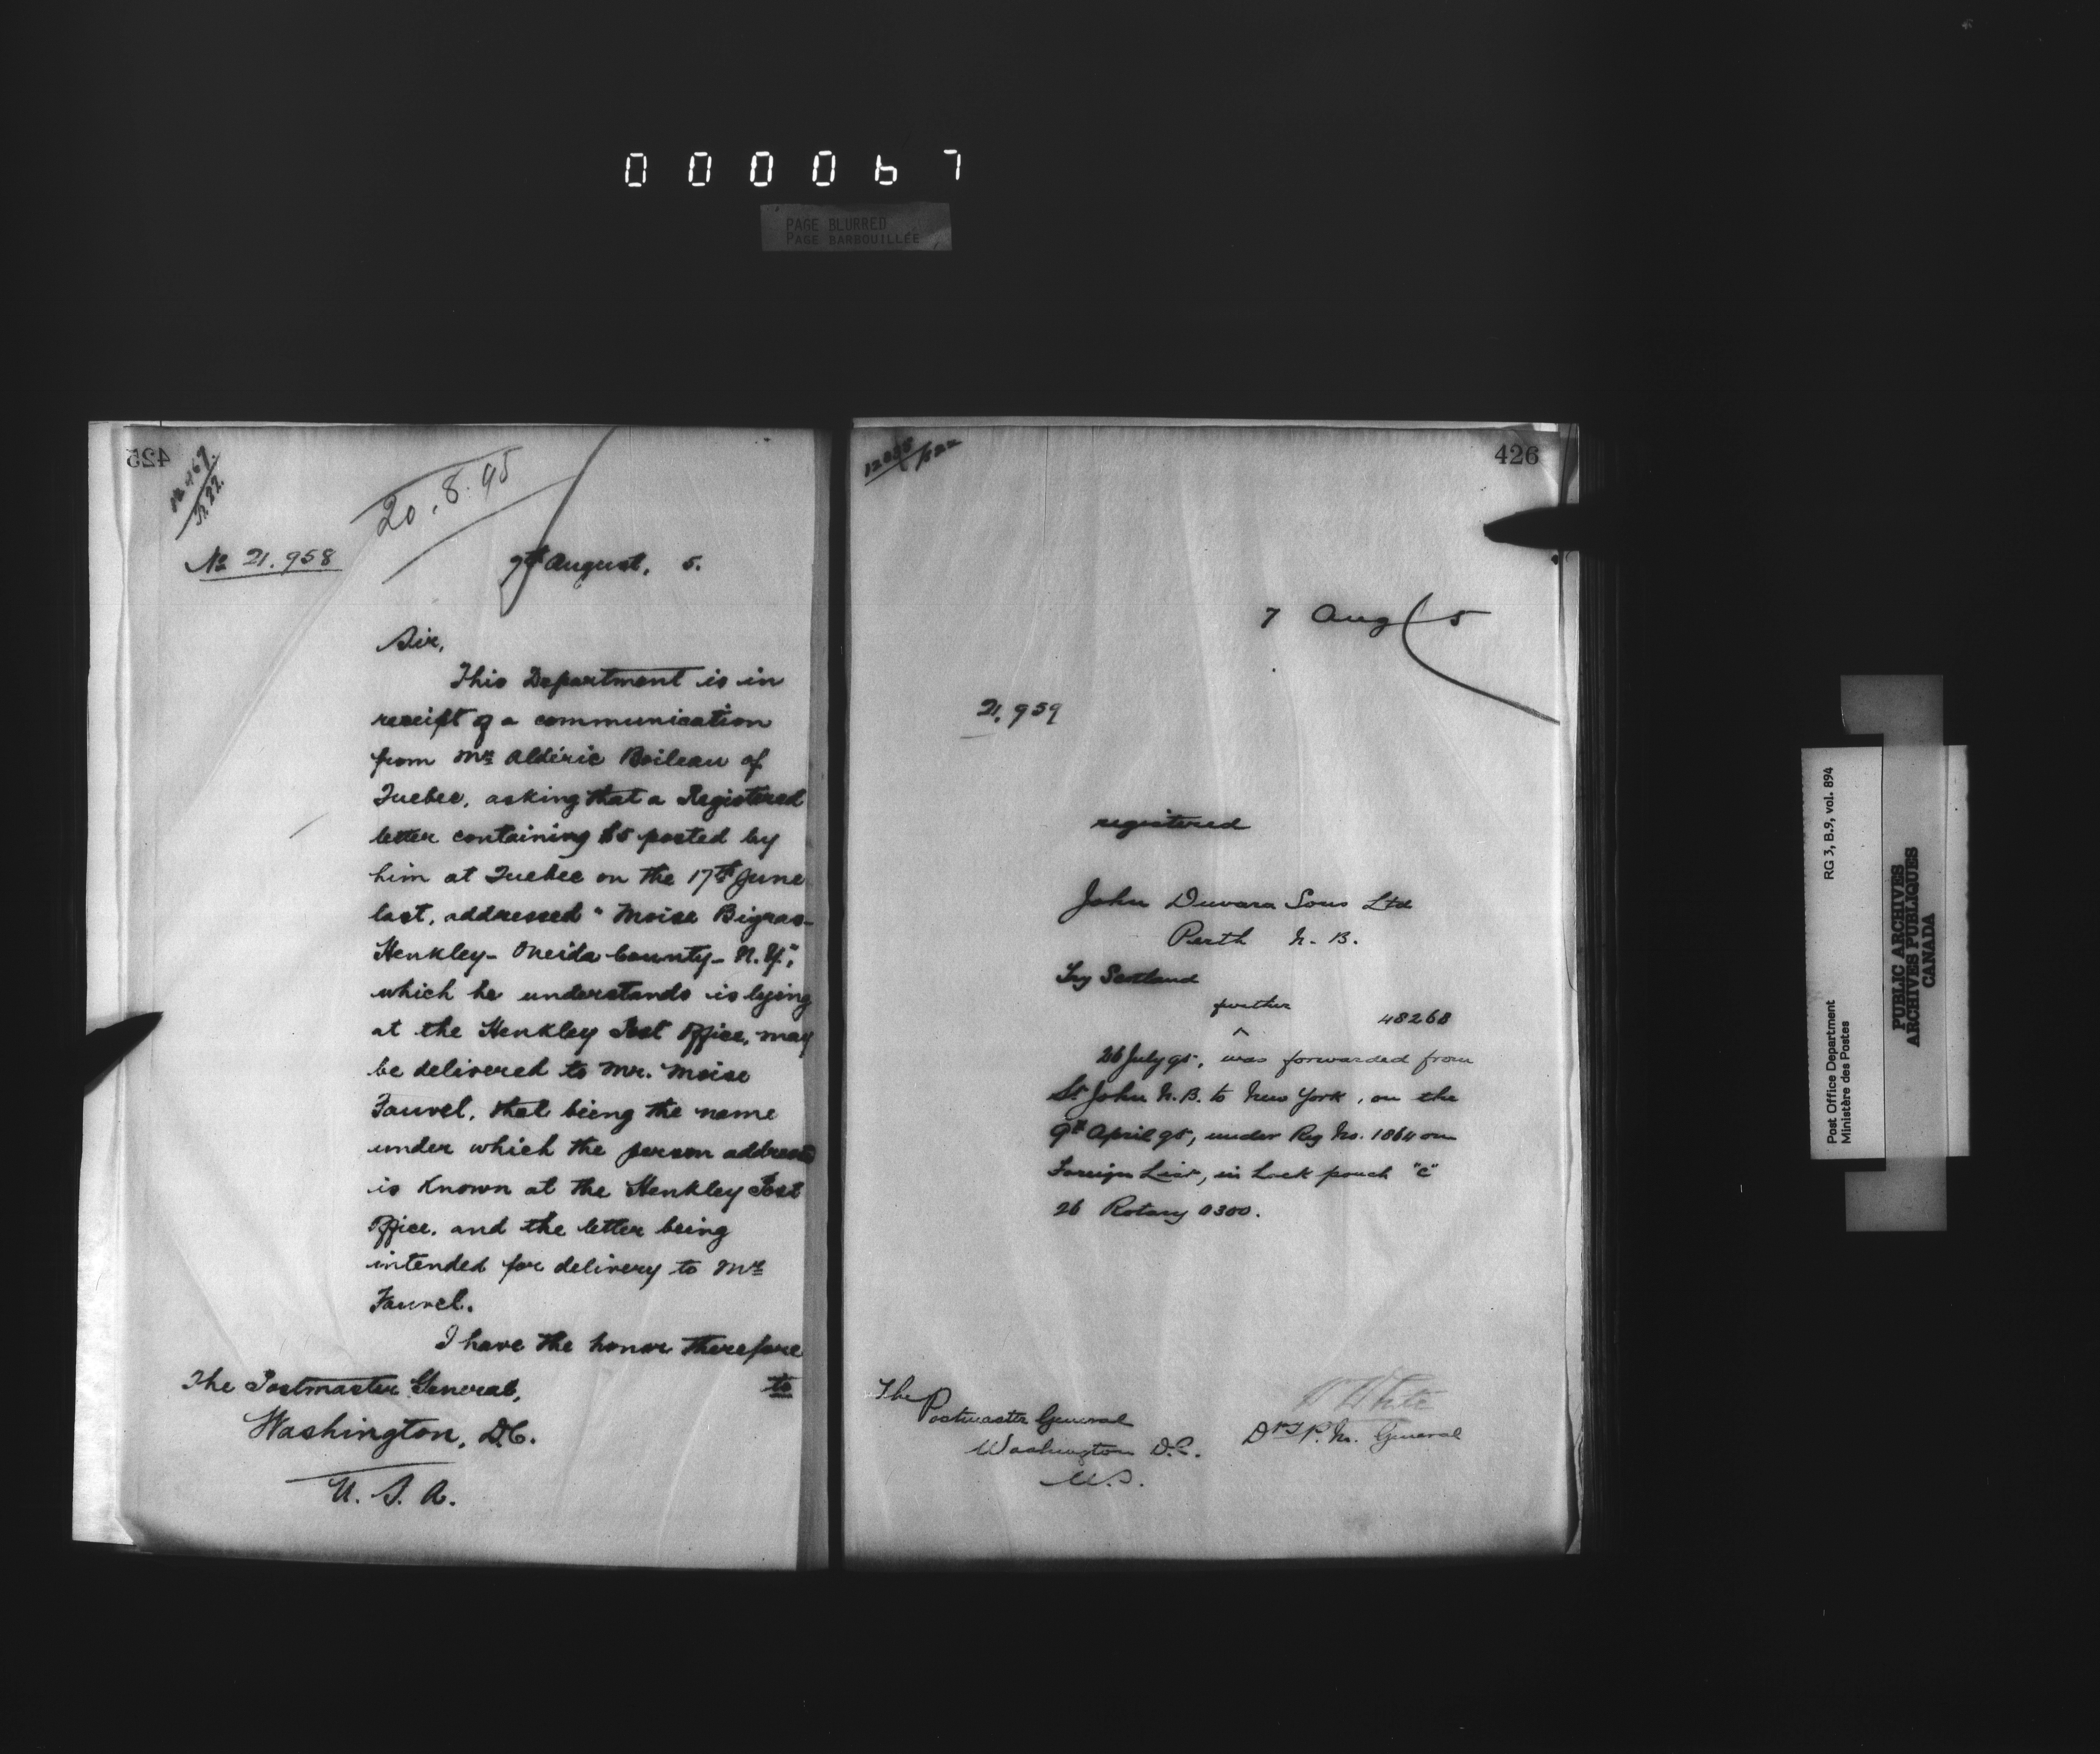 000067
PAGE BLURRED
PAGE BARBOUILLÉE
425
20.8.95
No 21.958
7th August, 5.
Sir,
This Department is in
receipt of a communication
from Mr Aldéric Boileau of
Quebec, asking that a Registered
letter containing $5 posted by
him at Quebec on the 17th June
last, addressed "Moise Bigras-
Henkley- Oneida County- N.Y.",
which he understands is lying
at the Henkley Post Office, may
be delivered to Mr. Moise
Fauvel, that being the name
under which the person addressed
is known at the Henkley Post
Office, and the letter being
intended for delivery to Mr
Fauvel.
I have the honor therefore
to
The Postmaster General,
Washington, D.C.
U. S. A.
426
7 Aug 5
21,959
registered
John Sons Ltd
Perth N. B.
Scotland
further
48268
26 July 95, was forwarded from
St John N.B. to New York, on the
9th April 95, under Reg No. 1864 on
Foreign List, in Lock pouch "C"
26 Rotary 0300.
The
Postmaster General
Washington D.C.
U.S.
W White
P.M. General
Post Office Department
Ministère des Postes
RG 3, B.9, vol. 894
PUBLIC ARCHIVES
ARCHIVES PUBLIQUES
CANADA